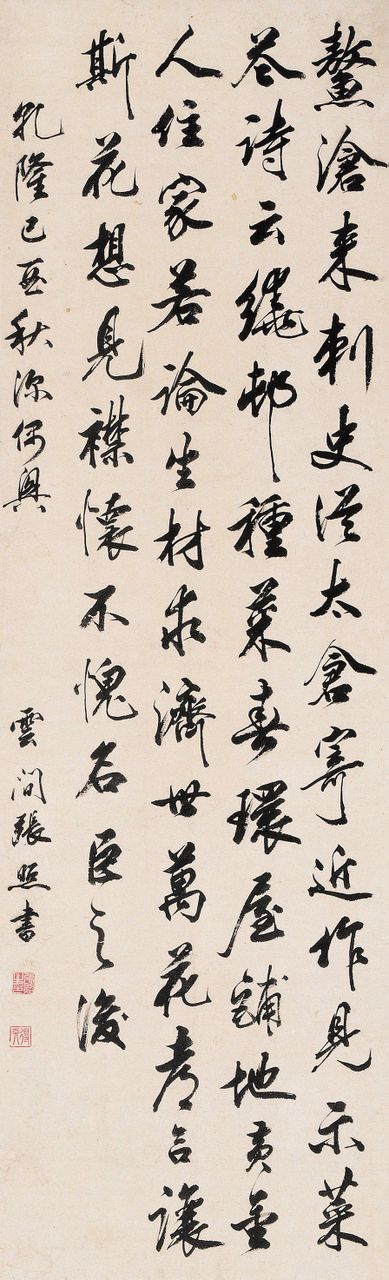 鰲滄来刺史從太倉寄近作見示菜
花詩云繞邨種菜春環屋鋪地黄金
人住家若論生材求濟世萬花考合讓
斯花想見襟懷不愧名臣之後
乾隆己亟秋深偶興
雲間張照書